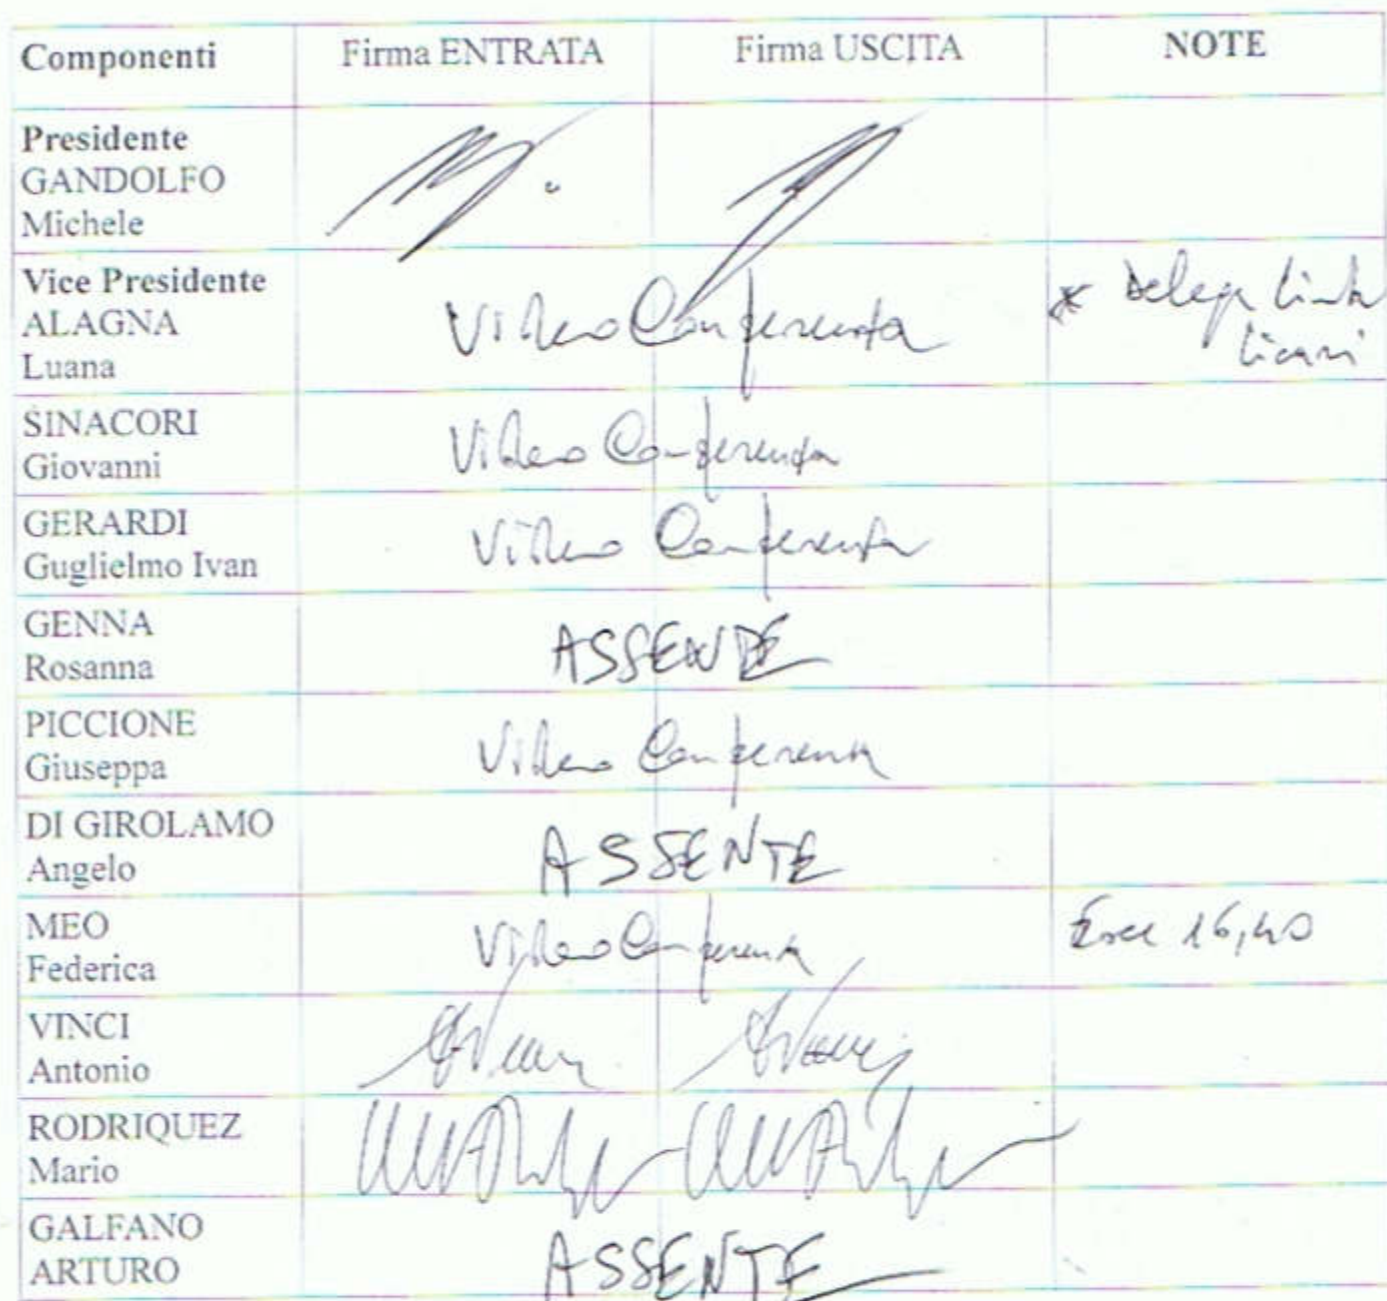 Componenti Firma ENTRATA Firma USCITA NOTE
Presidente
GANDOLFO
Michele
Vice Presidente
ALAGNA Video Conferenza * Delega Link
Luana Licari
SINACORI
Giovanni Video Conferenza
GERARDI
Guglielmo Ivan Video Conferenza
GENNA
Rosanna ASSENTE
PICCIONE
Giuseppa Video Conferenza
DI GIROLAMO
Angelo ASSENTE
MEO
Federica Video Conferenza Esce 16,40
VINCI
Antonio
RODRIQUEZ
Mario
GALFANO
ARTURO ASSENTE